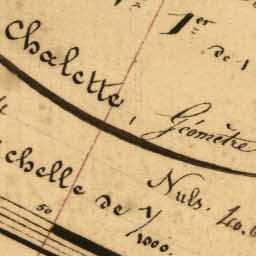 1er
de 1
Chalette, Géomètre
chelle de 1/1000.
Nuls.
50